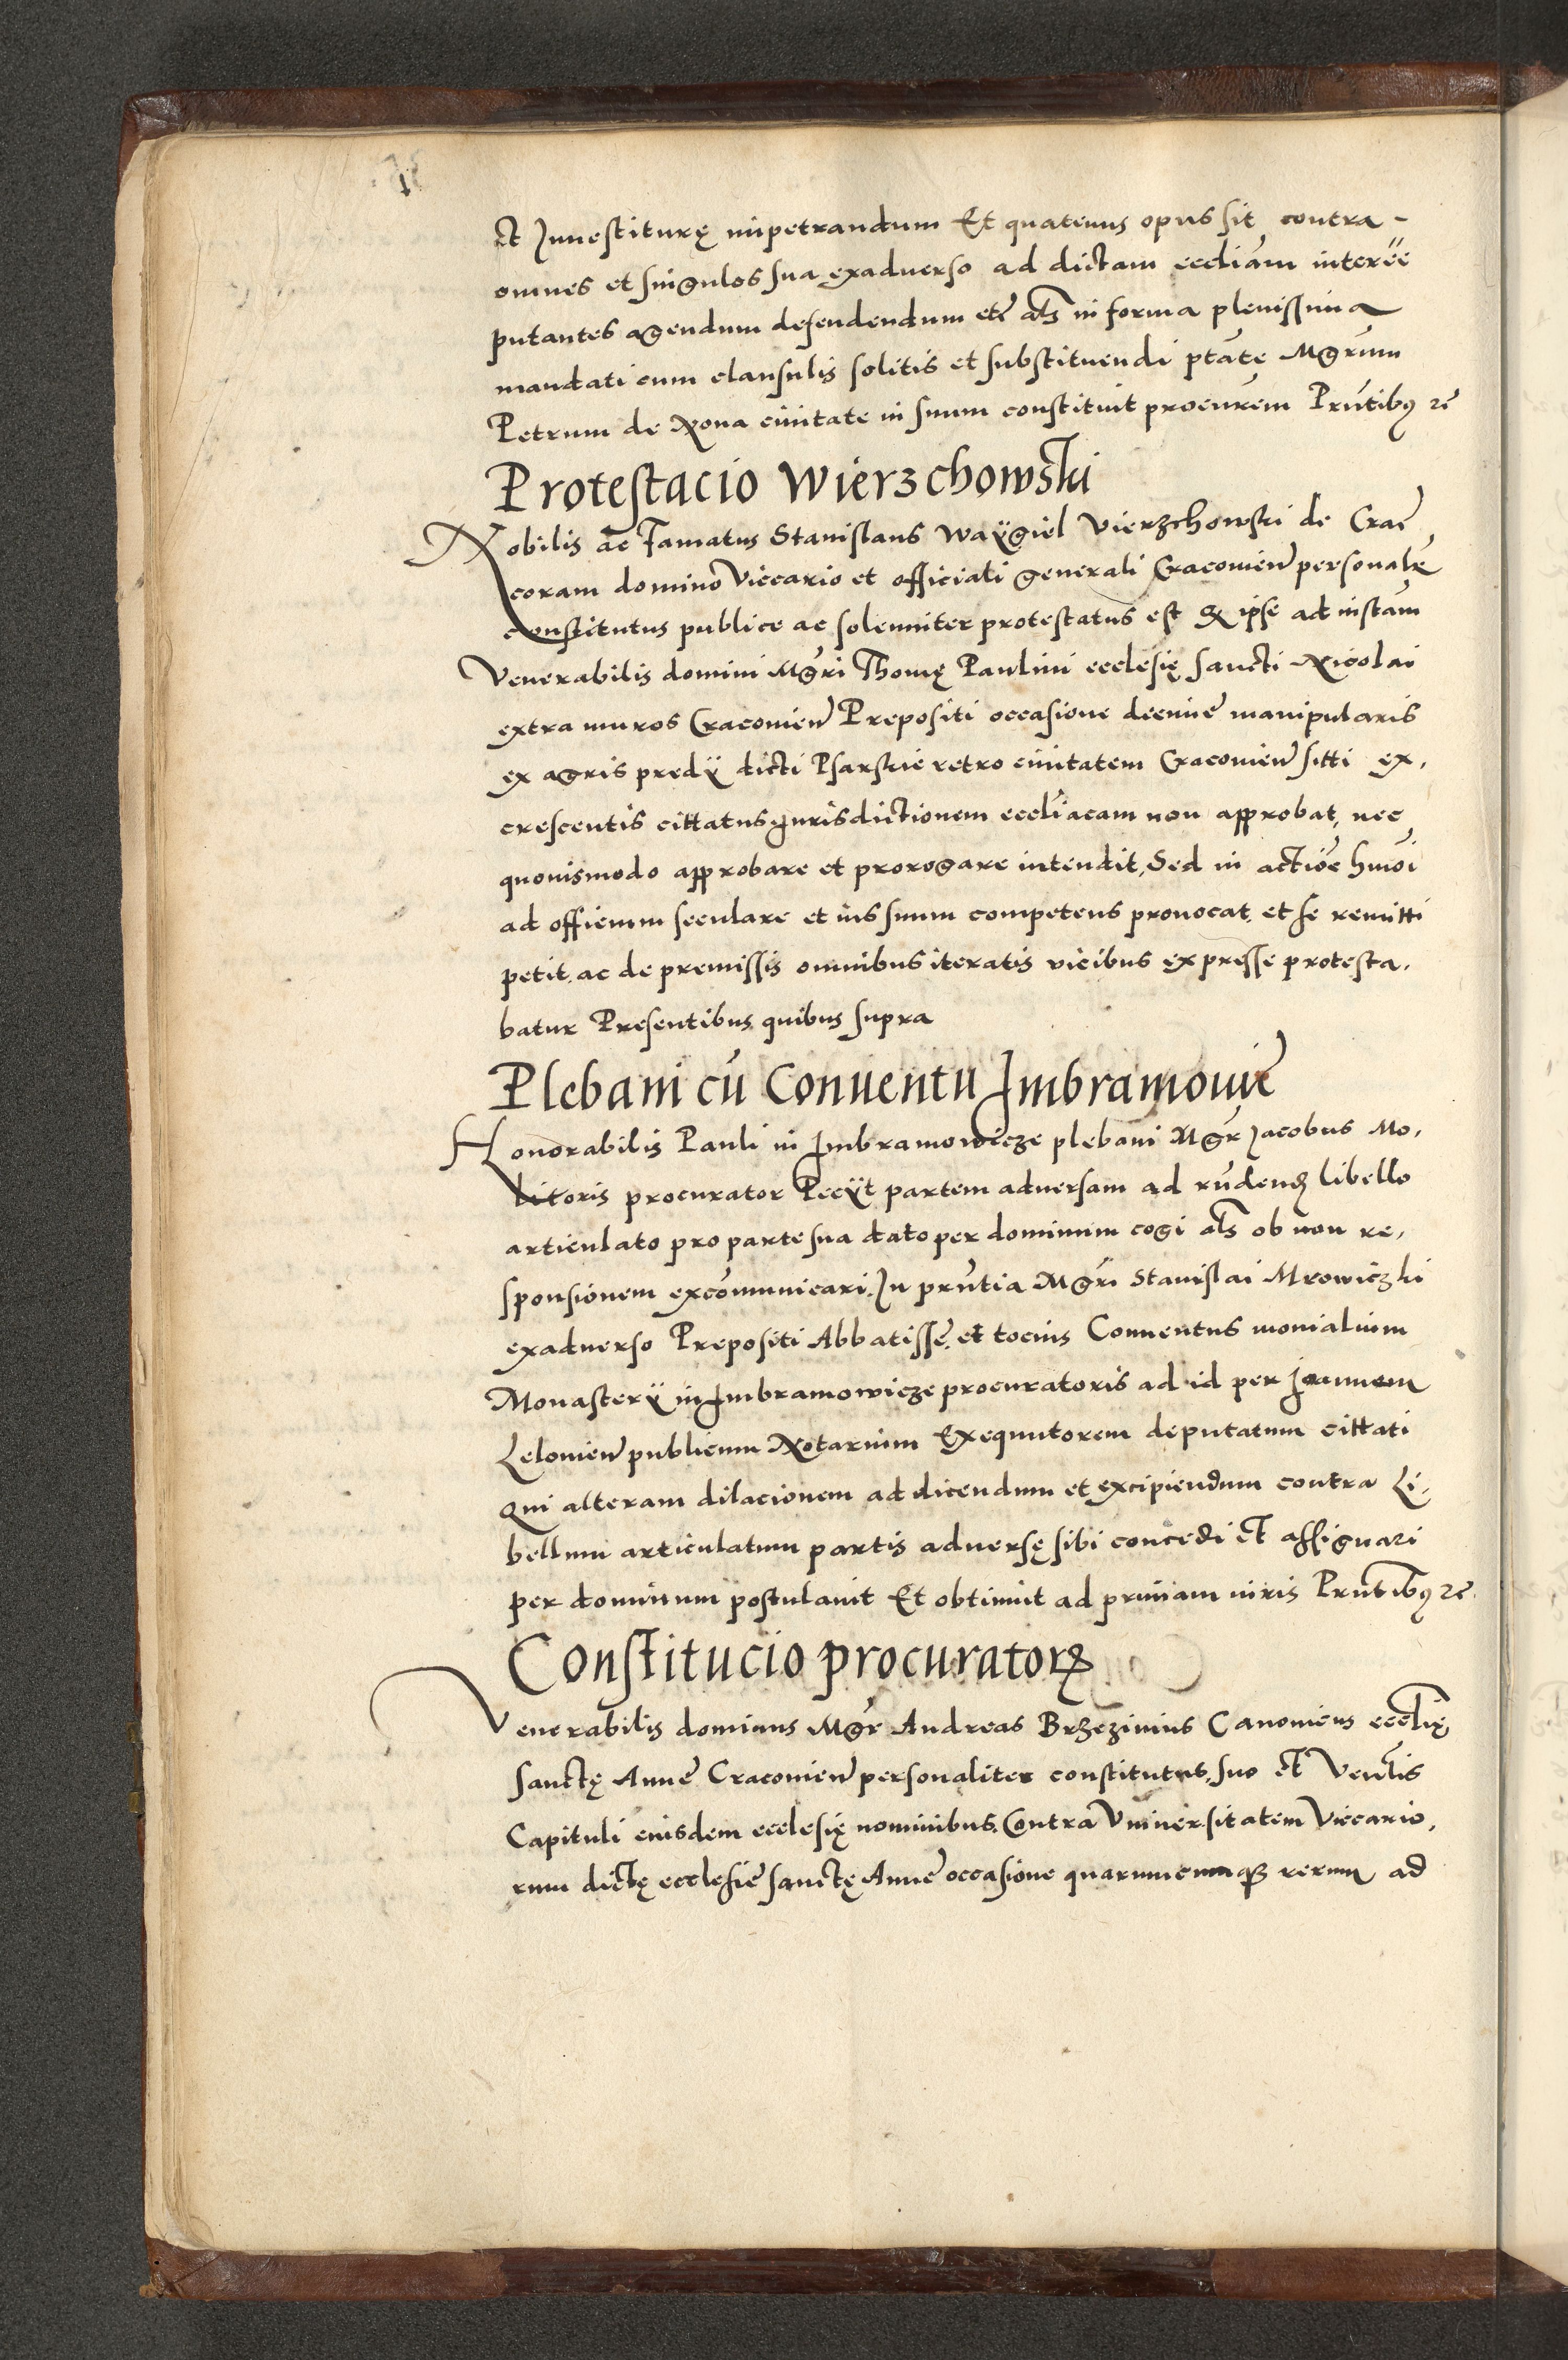 et Jnuestiturę impetrandum Et quatenus opus sit contra-
omnes et singulos sua exaduerso ad dictam eccl̄iam interēē
putantes agendum defendendum etc̄ al̄s in forma plenissima
mandati cum clausulis solitis et substituendi ptāte Mgr̄um
Petrum de Noua ciuitate in suum constituit procurēm Prn̄tibꝰ ꝛc̄
Protestacio Wierzchowski
Nobilis ac Famatus Stanislaus Waÿgiel Vierzchowski de Crac̄
coram domino Viccario et officiali generali Cracouien̄ personalr̄
constitutus publice ac solenniter protestatus est Qꝫ ipse ad instām
Venerabilis domini Mgr̄i Thomę Paulini ecclesię sancti Nicolai
extra muros Cracouien̄ Prepositi occasione decimę manipularis
ex agris predÿ dicti Psarskie retro ciuitatem Cracouien̄ sitti ex,
crescentis cittatus jurisdictionem eccl̄iacam non approbat, nec
quouismodo approbare et prorogare intendit, Sed in actiōe hmōi
ad officium seculare et ius suum competens prouocat, et se remitti
petit, ac de premissis omnibus iteratis vicibus expresse protesta,
batur Presentibus quibus supra
Plebani cū Conuentu Jmbramouic̄
Honorabilis Pauli in Jmbramowicze plebani Mgr̄ Jacobus Mo,
litoris procurator Pecÿt partem aduersam ad rn̄dendꝫ libello
articulato pro parte sua dato per dominum cogi al̄s ob non re,
sponsionem excōmunicari. In prn̄tia Mgr̄i Stanislai Mrowiczki
exaduerso Prepositi Abbatissę et tocius Conuentus monialium
Monasterÿ in Jmbramowicze procuratoris ad id per Joannem
Lelouien̄ publicum Notarium Exequutorem deputatum cittati
Qui alteram dilacionem ad dicendum et excipiendum contra Li,
bellum articulatum partis aduersę sibi concedi et assignari
per dominum postulauit Et obtinuit ad primam iuris Prn̄tibꝰ ꝛc̄
Constitucio procuratorꝝ
Venerabilis dominus Mgr̄ Andreas Brzezinius Canonicus eccl̄ię
sanctę Annę Cracouien̄ personaliter constitutus, suo et Ven̄lis
Capituli eiusdem ecclesię nominibus, Contra Vniuersitatem Viccario,
rum dictę ecclesię sanctę Annę occasione quarumcumqꝫ rerum ad